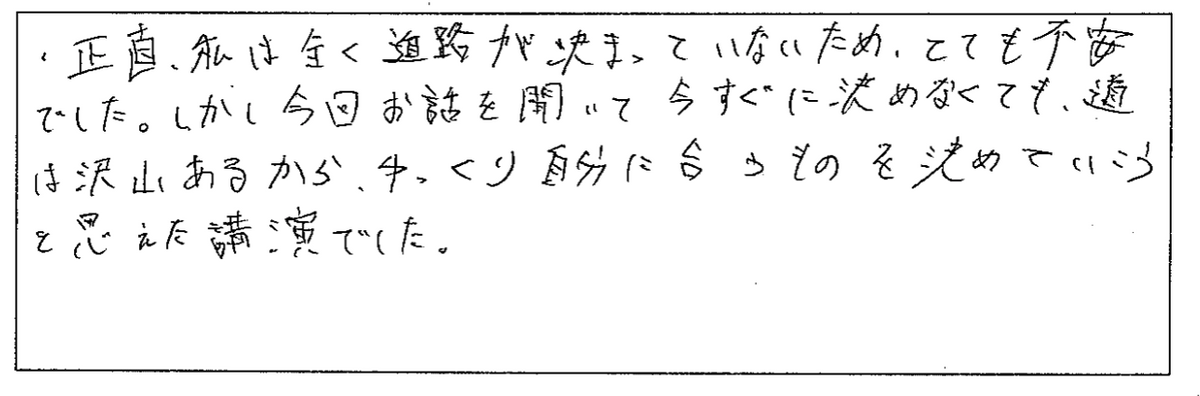 ・正直、私は全く進路が決まっていないため、とても不安
でした。しかし今回お話を聞いて今すぐに決めなくても、道
は沢山あるから、ゆっくり自分に合うものを決めていこう
と思えた講演でした。